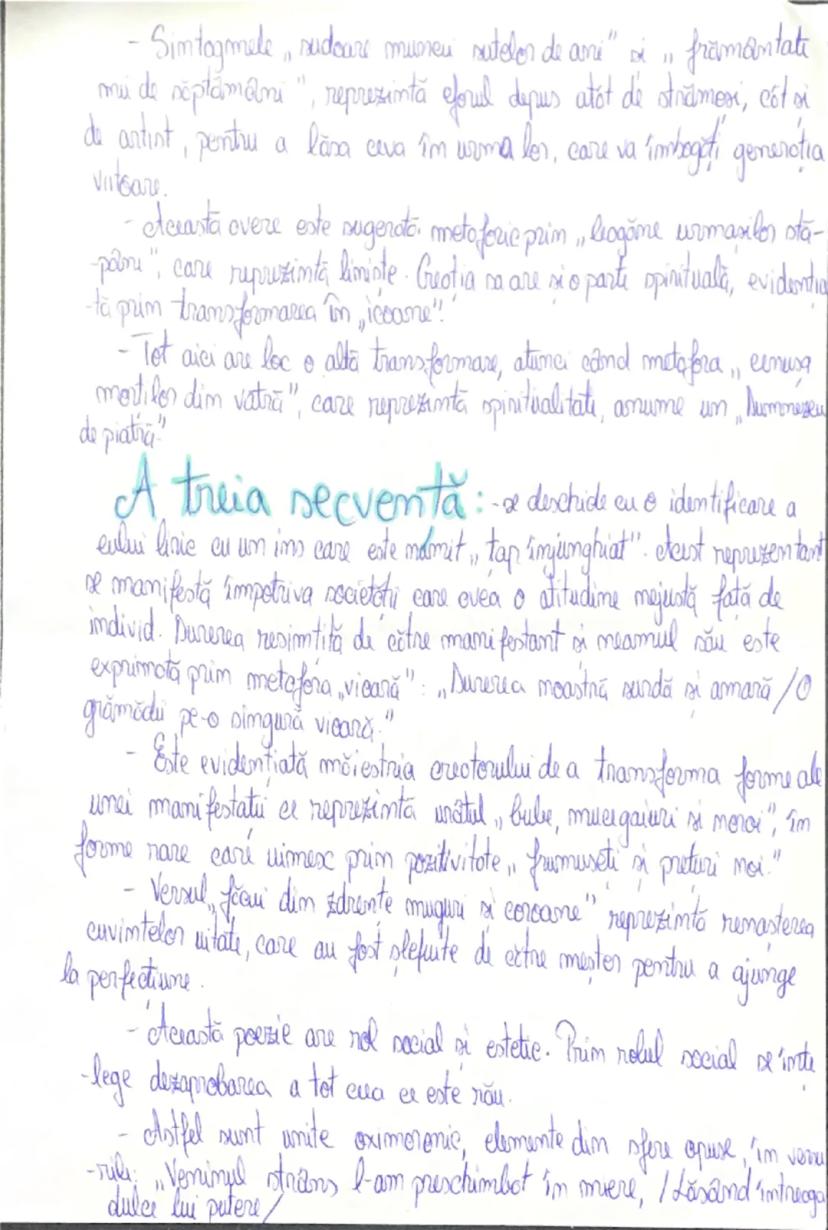 - Simtagmele „sudoare muncii sutelor de ani" si „ frământate
mii de săptămâni", reprezintă efortul depus atât de strămosi, cât si
de artist, pentru a lăsa ceva în urma lor, care va îmbogăți generația
viitoare.
- Această avere este sugerată metaforic prim „leagăne urmașilor stă-
-pâni", care reprezintă liniste. Creația sa are și o parte spirituală, evidenția
-tă prim transformarea în „icoane".
- Tot aici are loc o altă transformare, atunci când metafora „cenușa
morților dim vatră", care reprezintă spiritualitate, anume un „Dumnezeu
de piatră"
A treia secvență: - se deschide cu o identificare a
eului liric cu un ins care este numit „țap înjunghiat". Acest reprezentant
se manifestă împotriva societății care avea o atitudine nejustă față de
individ. Durerea resimțită de către manifestant și neamul său este
exprimată prim metafora „vioară" : „Durerea noastră surdă si amară /O
grămădii pe-o singură vioară."
- Este evidențiată măiestria creatorului de a transforma forme ale
unei manifestații ce reprezintă urâtul „bube, mucigaiuri si noroi", în
forme rare care uimesc prim pozitivitate „frumuseți și prețuri noi."
- Versul „făcui dim zdrențe muguri si coroane" reprezintă renasterea
cuvintelor uitate, care au fost șlefuite de către meșter pentru a ajunge
la perfecțiune.
- Această poezie are rol social și estetic. Prim rolul social se înțe
-lege dezaprobarea a tot ceea ce este rău.
- Astfel sunt unite oximoronic, elemente din sfere opuse, în versu
-rile: „Veninul strâns l-am preschimbat în miere, / Lăsând întreaga
dulce lui putere/